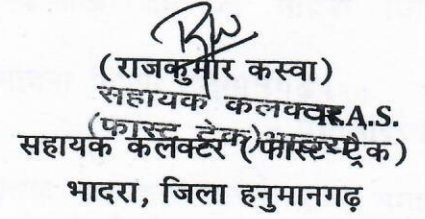 (राजकुमार कस्वा)
सहायक कलक्टर R.A.S.
(फास्ट ट्रेक) भादरा
सहायक कलेक्टर (फास्ट ट्रैक)
भादरा, जिला हनुमानगढ़